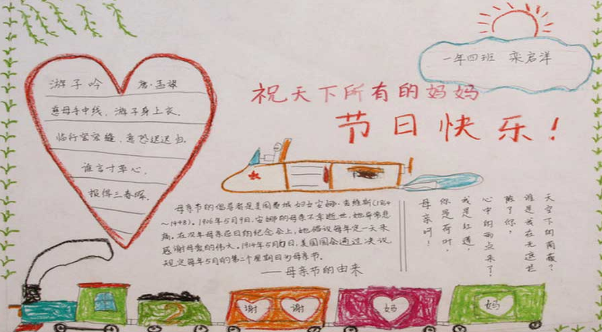 游子吟 唐·孟郊
慈母手中线，游子身上衣。
临行密密缝，意恐迟迟归。
谁言寸草心，
报得三春晖。
一年四班 栾启洋
祝天下所有的妈妈
节日快乐！
母亲节的倡导者是美国费城妇女安娜·查维斯(1864
~1948)。1906年5月9日，安娜的母亲不幸逝世，她
痛。在次年母亲忌日的纪念会上，她倡议每年定一天来
感谢母爱的伟大。1914年5月 日，美国国会通过决议
规定每年5月的第二个星期日为母亲节。
——母亲节的由来
母亲呵！
你是荷叶，
我是红莲，
心中的雨点来了，
除了你，
谁是我在无遮拦
天空下的荫蔽？
谢 谢 妈 妈